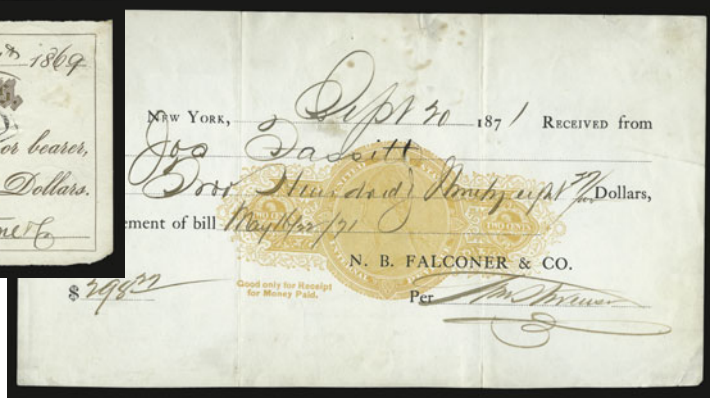 1869
or bearer,
Dollars.
New York, Sept 20 1871 Received from
Jos Fassitt
Two Hundred & Ninety eight 37/100 Dollars,
ement of bill May 16/22/71
TWO CENTS
N. B. FALCONER & CO.
Good only for Receipt
for Money Paid.
$ 298 37
Per